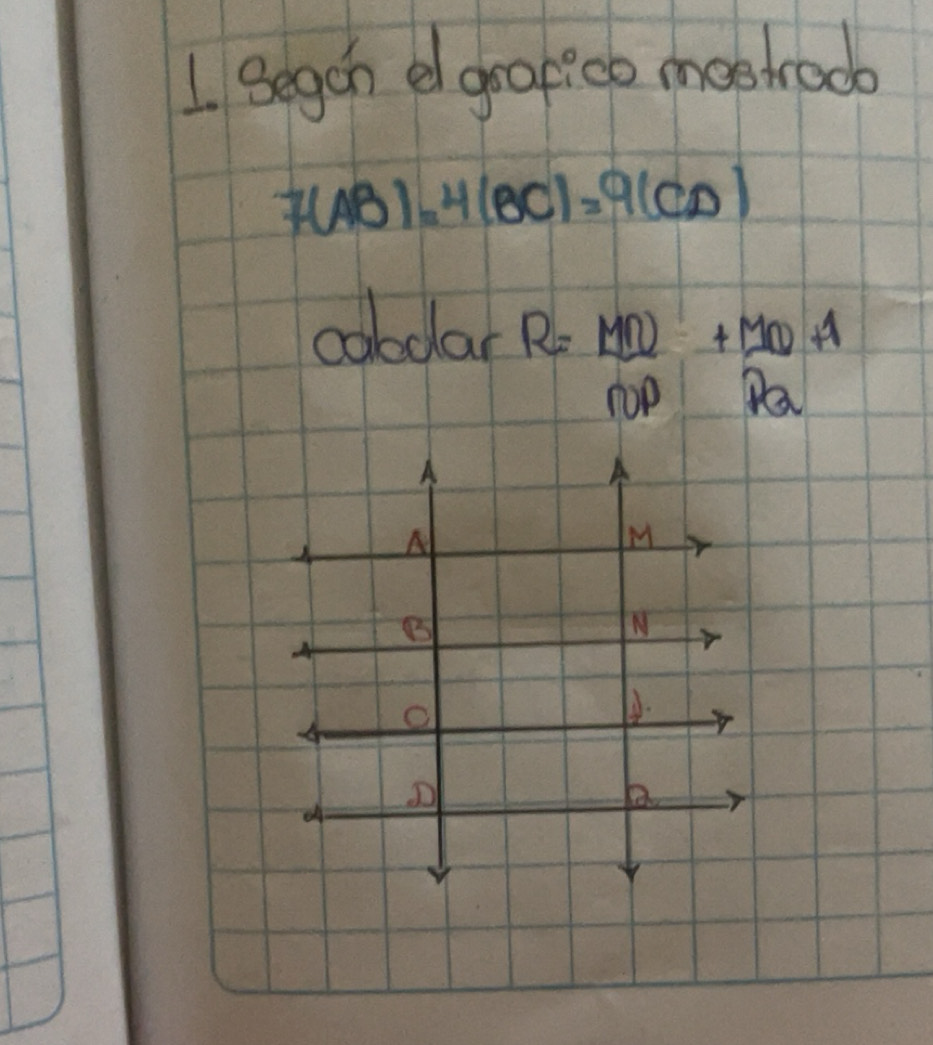 1. Según el grafico mostrado
7(AB)=4(BC)=9(CD)
calcular R= MN + MN +1
NP PQ
A M
B N
C P
D Q